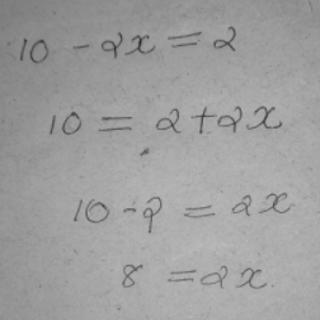 10 - 2x = 2
10 = 2 + 2x
10 - 2 = 2x
8 = 2x